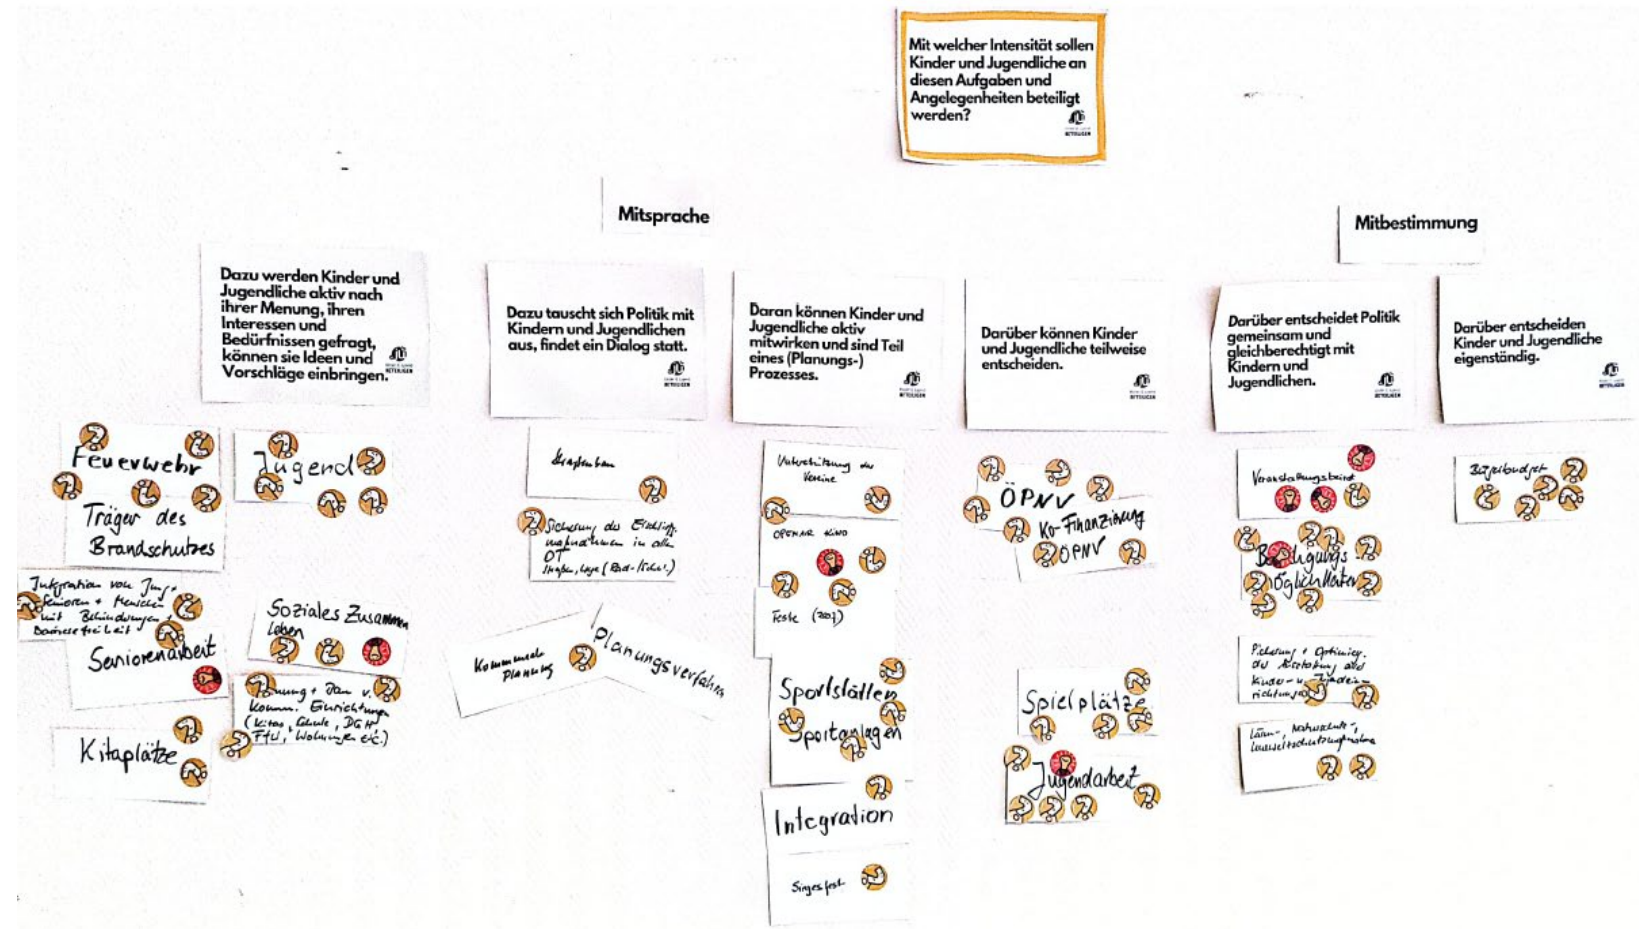 Mit welcher Intensität sollen
Kinder und Jugendliche an
diesen Aufgaben und
Angelegenheiten beteiligt
werden?
Mitsprache
Mitbestimmung
Dazu werden Kinder und
Jugendliche aktiv nach
ihrer Menung, ihren
Interessen und
Bedürfnissen gefragt,
können sie Ideen und
Vorschläge einbringen.
Dazu tauscht sich Politik mit
Kindern und Jugendlichen
aus, findet ein Dialog statt.
Daran können Kinder und
Jugendliche aktiv
mitwirken und sind Teil
eines (Planungs-)
Prozesses.
Darüber können Kinder
und Jugendliche teilweise
entscheiden.
Darüber entscheidet Politik
gemeinsam und
gleichberechtigt mit
Kindern und
Jugendlichen.
Darüber entscheiden
Kinder und Jugendliche
eigenständig.
Feuerwehr
Träger des
Brandschutzes
Integration von
Senioren + Menschen
mit Behinderungen +
Barrierefreiheit
Seniorenarbeit
Kitaplätze
Jugend
Soziales Zusammen
leben
Komm. Einrichtungen
(Kitas, Schule, DGH
Wohnungen etc.)
Straßenbau
Sicherung der
maßnahmen in allen
OT
Kommunale
Planung
Planungsverfahren
Unterstützung der
Vereine
OPENAIR KINO
Feste
Sportstätten
Sportanlagen
Integration
Singesfest
ÖPNV
Ko-Finanzierung
ÖPNV
Spielplätze
Jugendarbeit
Veranstaltungsbeirat
Beteiligungs
möglichkeiten
der Ausstattung
Kinder- u.
richtungen
Lärm-, Naturschutz-,
Umweltschutzmaßnahme
Bürgerbudget